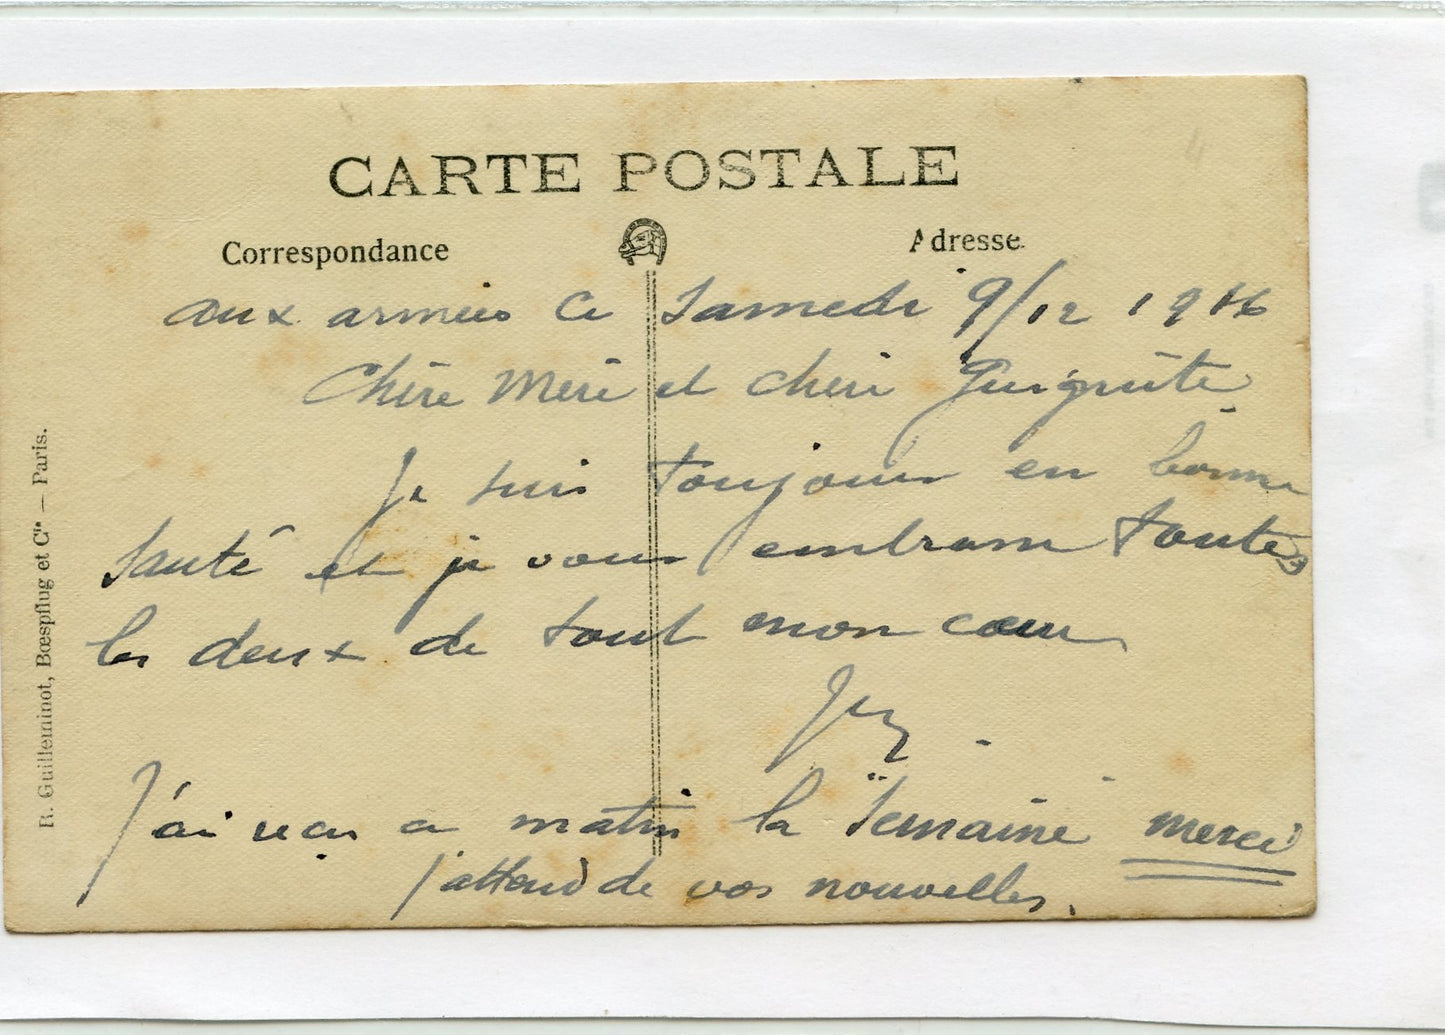 CARTE POSTALE
Correspondance
Adresse.
aux armées ce Samedi 9/12 1916
Chère Mère et cheri
Je suis toujours en bonne
Santé et je vous embrasse toutes
les deux de tout mon cœur
J'ai reçu ce matin la "Semaine" merci
j'attend de vos nouvelles.
R. Guilleminot, Bœspflug et Cie — Paris.